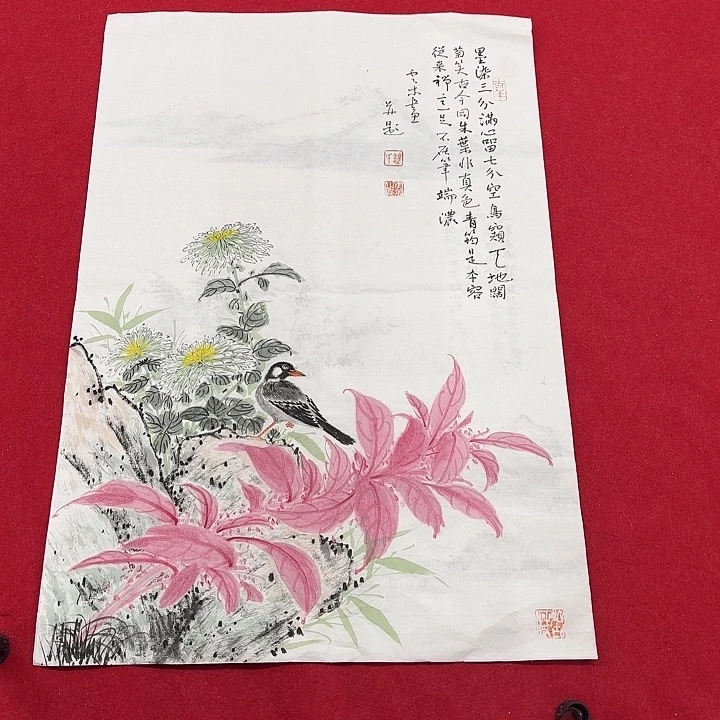 墨染三分滿心留七分空鳥窺天地闊
菊笑古今同朱葉非真色青筠是本容
從来禅意足不在筆端濃
雲木畫
并題